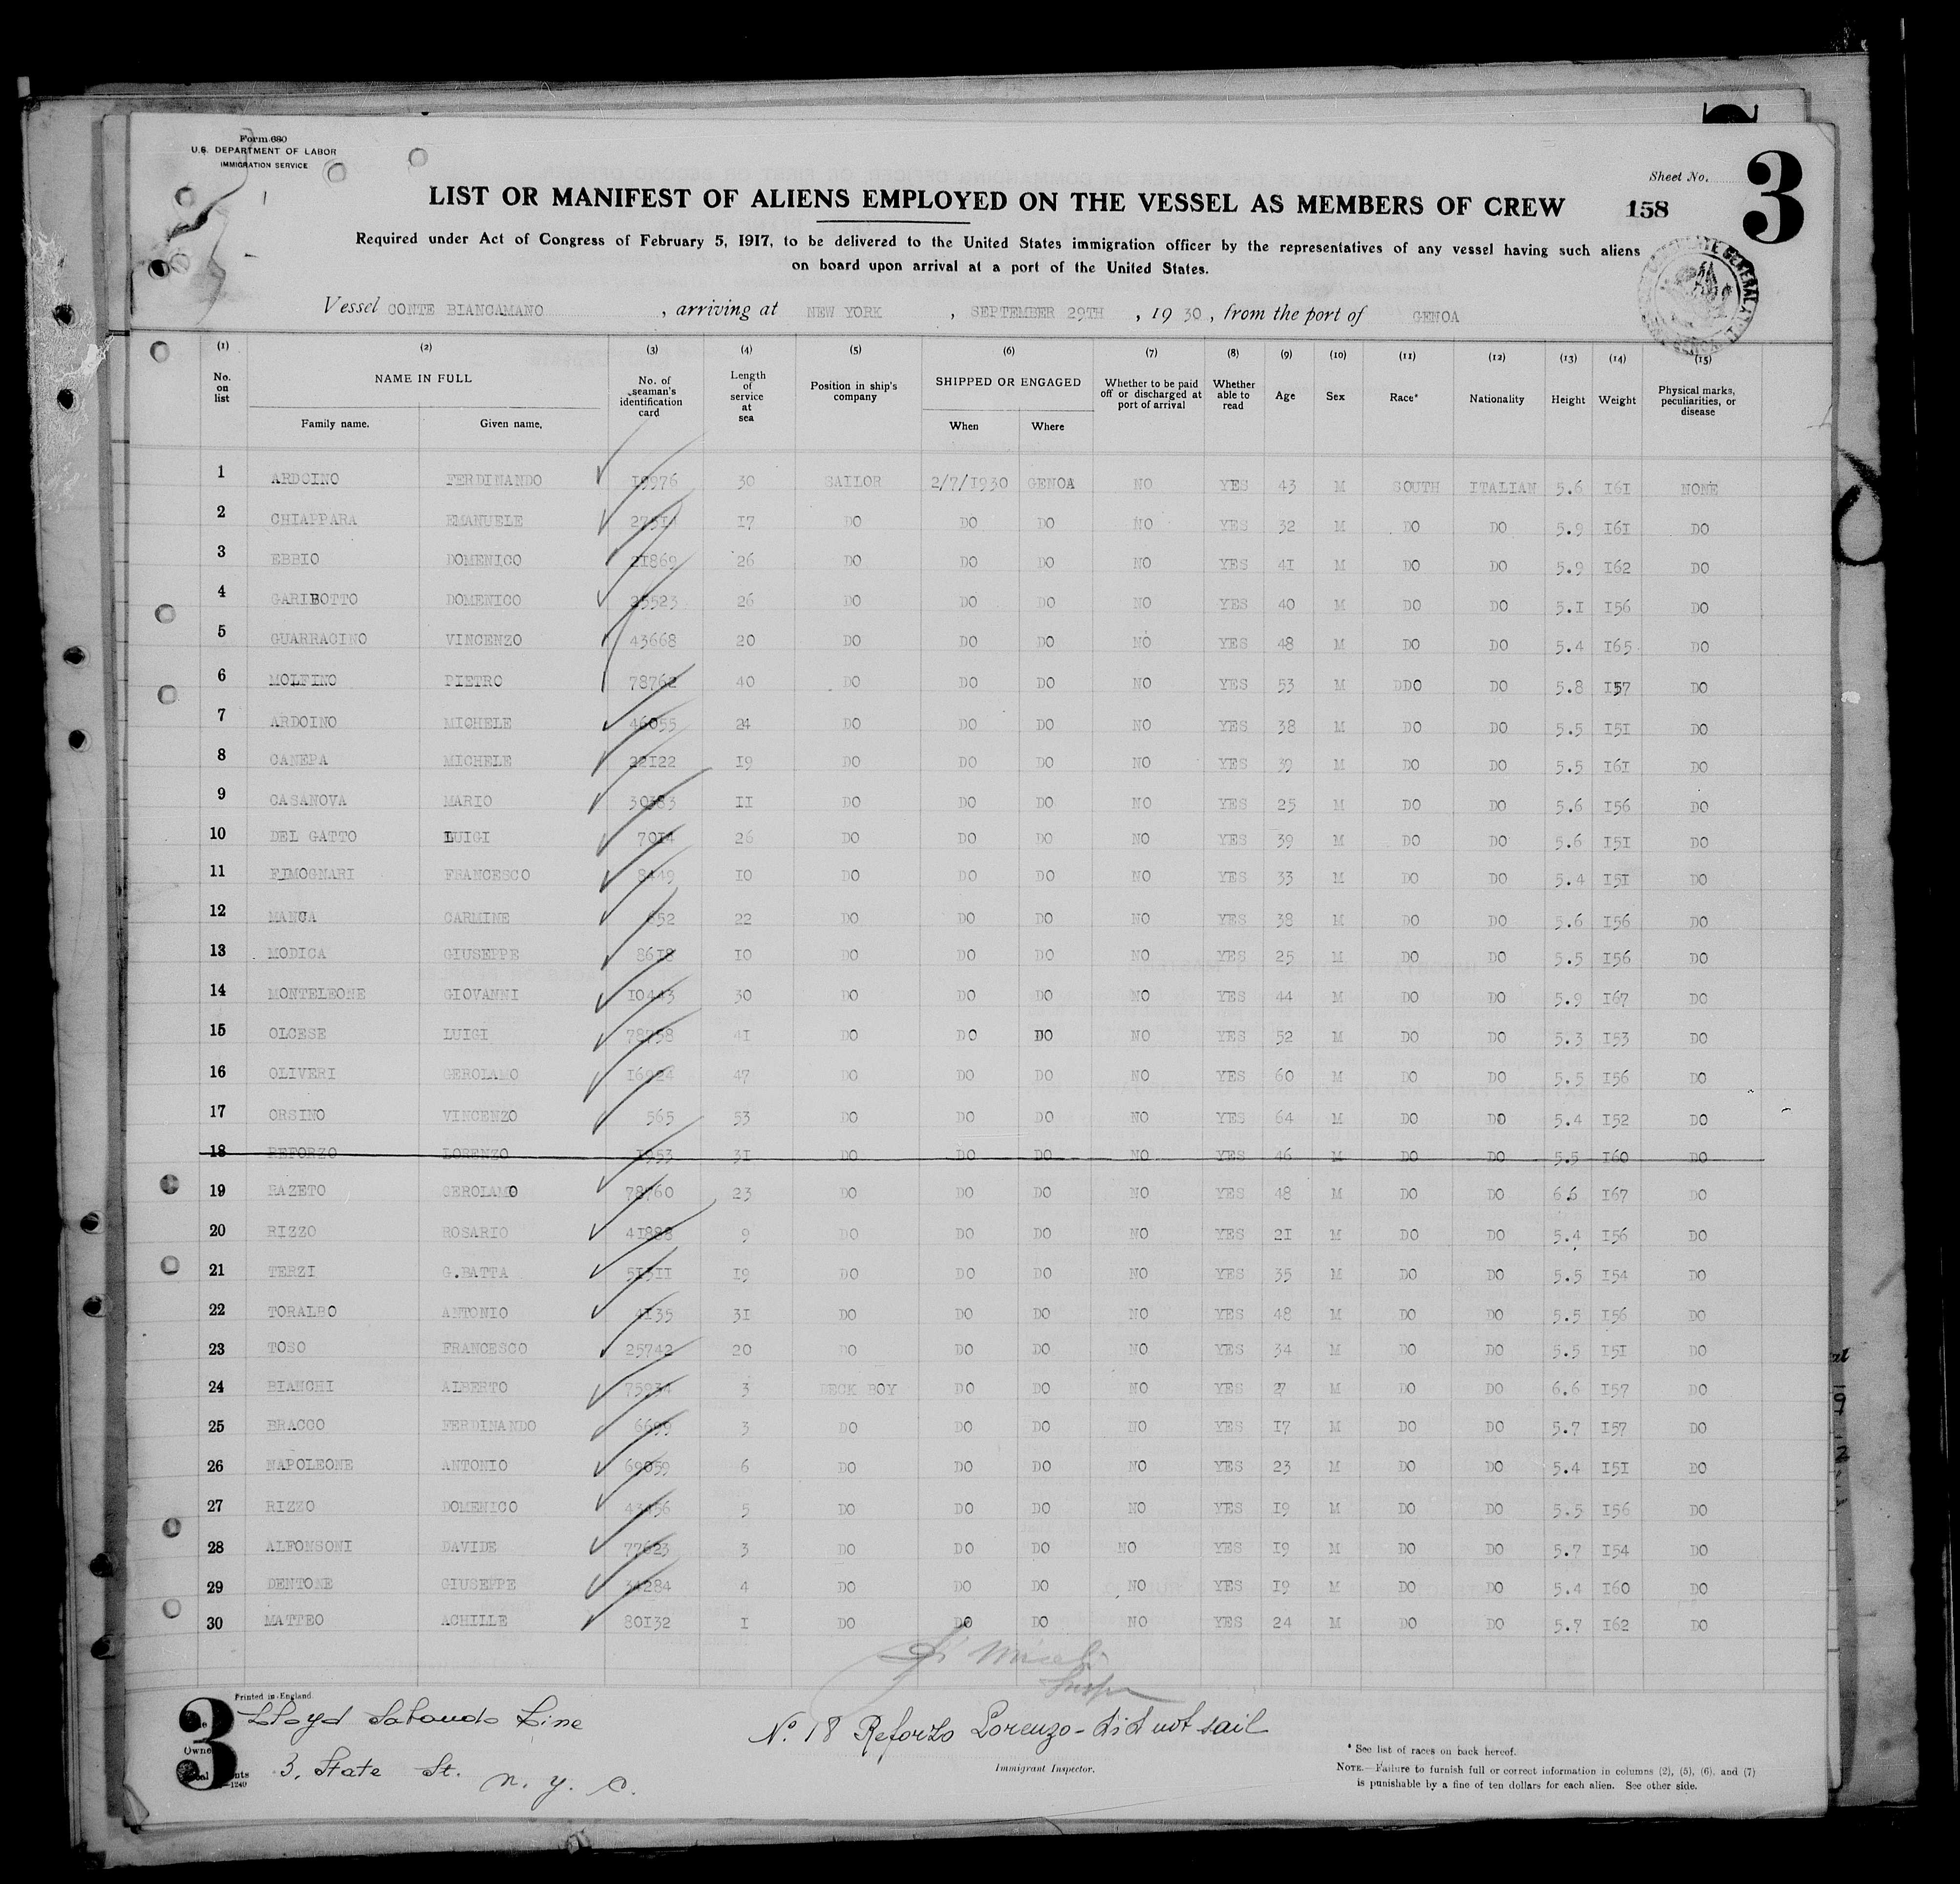 Form 680
U.S. DEPARTMENT OF LABOR
IMMIGRATION SERVICE
Sheet No.
3
158
LIST OR MANIFEST OF ALIENS EMPLOYED ON THE VESSEL AS MEMBERS OF CREW
Required under Act of Congress of February 5, 1917, to be delivered to the United States immigration officer by the representatives of any vessel having such aliens
on board upon arrival at a port of the United States.
Vessel CONTE BIANCAMANO, arriving at NEW YORK, SEPTEMBER 29TH, 1930, from the port of GENOA
(1) (2) (3) (4) (5) (6) (7) (8) (9) (10) (11) (12) (13) (14) (15)
No. on list NAME IN FULL Family name. Given name, No. of seaman's identification card Length of service at sea Position in ship's company SHIPPED OR ENGAGED When Where Whether to be paid off or discharged at port of arrival Whether able to read Age Sex Race* Nationality Height Weight Physical marks, peculiarities, or disease
1 ARDOINO FERDINANDO 19976 30 SAILOR 2/7/1930 GENOA NO YES 43 M SOUTH ITALIAN 5.6 161 NONE
2 CHIAPPARA EMANUELE 17 DO DO DO NO YES 32 M DO DO 5.9 161 DO
3 EBBIO DOMENICO 21869 26 DO DO DO NO YES 41 M DO DO 5.9 162 DO
4 GARIBOTTO DOMENICO 25523 26 DO DO DO NO YES 40 M DO DO 5.1 156 DO
5 GUARRACINO VINCENZO 43668 20 DO DO DO NO YES 48 M DO DO 5.4 165 DO
6 MOLFINO PIETRO 78762 40 DO DO DO NO YES 53 M DDO DO 5.8 157 DO
7 ARDOINO MICHELE 46055 24 DO DO DO NO YES 38 M DO DO 5.5 151 DO
8 CANEPA MICHELE 22122 19 DO DO DO NO YES 39 M DO DO 5.5 161 DO
9 CASANOVA MARIO 30383 11 DO DO DO NO YES 25 M DO DO 5.6 156 DO
10 DEL GATTO LUIGI 7014 26 DO DO DO NO YES 39 M DO DO 5.6 151 DO
11 FIMOGNARI FRANCESCO 8449 10 DO DO DO NO YES 33 M DO DO 5.4 151 DO
12 MANCA CARMINE 22 DO DO DO NO YES 38 M DO DO 5.6 156 DO
13 MODICA GIUSEPPE 8618 10 DO DO DO NO YES 25 M DO DO 5.5 156 DO
14 MONTELEONE GIOVANNI 10443 30 DO DO DO NO YES 44 M DO DO 5.9 167 DO
15 OLCESE LUIGI 78758 41 DO DO DO NO YES 52 M DO DO 5.3 153 DO
16 OLIVERI GEROLAMO 16924 47 DO DO DO NO YES 60 M DO DO 5.5 156 DO
17 ORSINO VINCENZO 565 53 DO DO DO NO YES 64 M DO DO 5.4 152 DO
18 REFORZO LORENZO 31 DO DO DO NO YES 46 M DO DO 5.5 160 DO
19 RAZETO GEROLAMO 78760 23 DO DO DO NO YES 48 M DO DO 6.6 167 DO
20 RIZZO ROSARIO 41888 9 DO DO DO NO YES 21 M DO DO 5.4 156 DO
21 TERZI G.BATTA 51311 19 DO DO DO NO YES 35 M DO DO 5.5 154 DO
22 TORALBO ANTONIO 4135 31 DO DO DO NO YES 48 M DO DO 5.5 156 DO
23 TOSO FRANCESCO 25742 20 DO DO DO NO YES 34 M DO DO 5.5 151 DO
24 BIANCHI ALBERTO 75934 3 DECK BOY DO DO NO YES 27 M DO DO 6.6 157 DO
25 BRACCO FERDINANDO 6699 3 DO DO DO NO YES 17 M DO DO 5.7 157 DO
26 NAPOLEONE ANTONIO 69059 6 DO DO DO NO YES 23 M DO DO 5.4 151 DO
27 RIZZO DOMENICO 43456 5 DO DO DO NO YES 19 M DO DO 5.5 156 DO
28 ALFONSONI DAVIDE 77623 3 DO DO DO NO YES 19 M DO DO 5.7 154 DO
29 DENTONE GIUSEPPE 34284 4 DO DO DO NO YES 19 M DO DO 5.4 160 DO
30 MATTEO ACHILLE 80132 1 DO DO DO NO YES 24 M DO DO 5.7 162 DO
Printed in England
3
Lloyd Sabaudo Line
3, State St. N.Y.C.
No. 18 Reforzo Lorenzo - did not sail
Immigrant Inspector.
* See list of races on back hereof.
NOTE.—Failure to furnish full or correct information in columns (2), (5), (6), and (7)
is punishable by a fine of ten dollars for each alien. See other side.